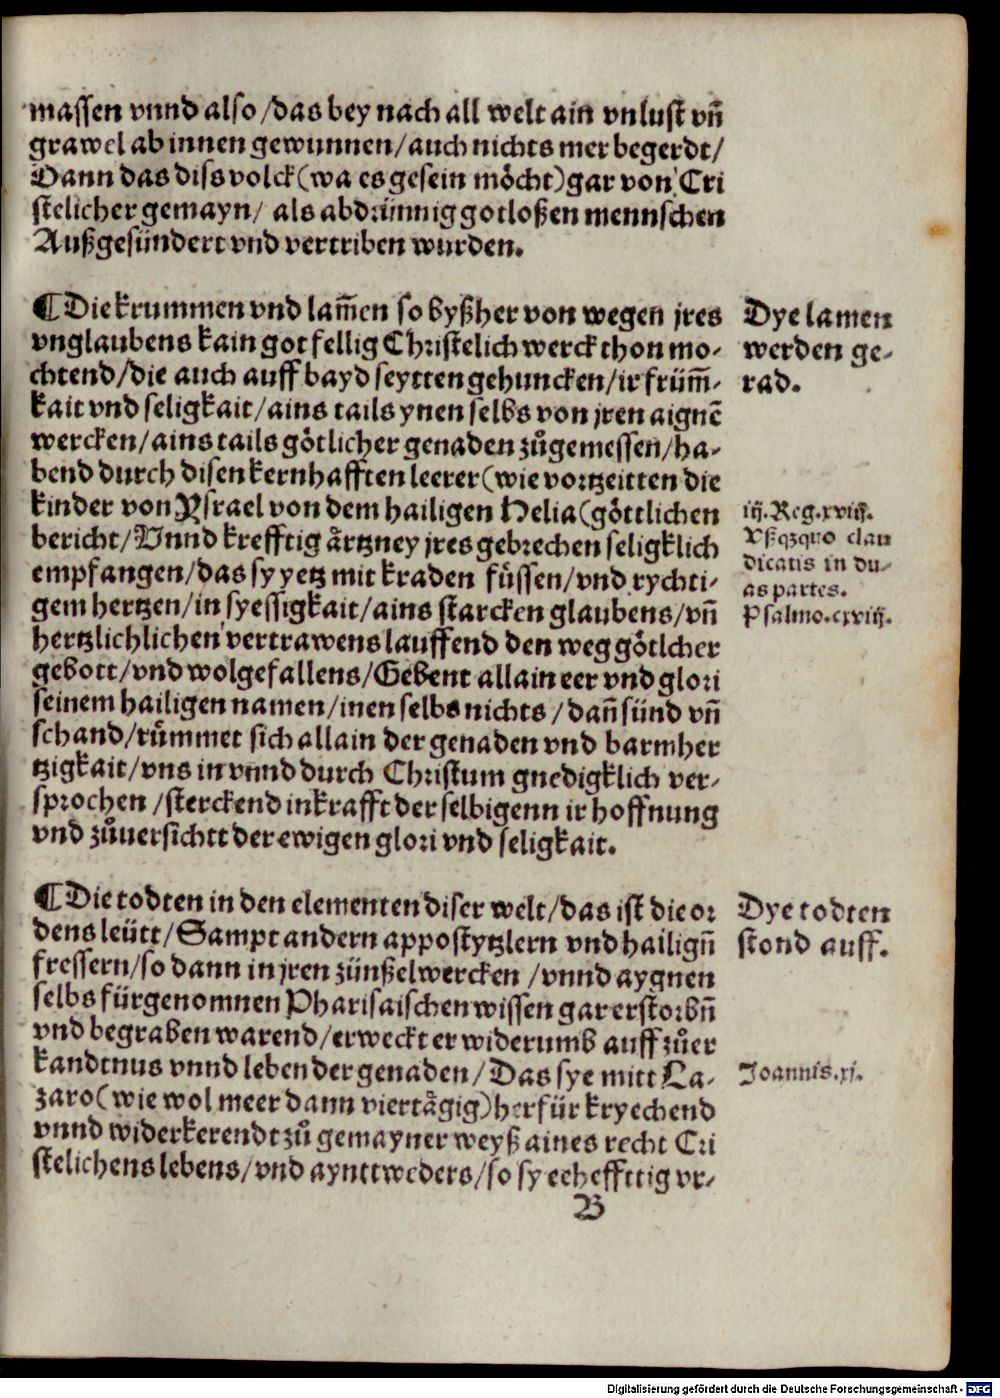 massen vnnd also /das bey nach all welt ain vnlust vñ
grawel ab innen gewunnen/auch nichts mer begerdt/
Dann das diss volck(wa es gesein möcht)gar von Cri
stelicher gemayn/ als abdrünnig gotloßen mennschen
Außgesündert vnd vertriben wurden.
¶Die krummen vnd lam̃en so byßher von wegen jres
vnglaubens kain got fellig Christelich werck thon mo-
chtend/die auch auff bayd seytten gehuncken/ir früm̃-
kait vnd seligkait/ains tails ynen selbs von jren aignẽ
wercken/ains tails götlicher genaden zůgemessen/ha-
bend durch disen kernhafften leerer(wie vortzeitten die
kinder von Ysrael von dem hailigen Helia(göttlichen
bericht/Vnnd krefftig ärtzney jres gebrechen seligklich
empfangen/das sy yetz mit kraden füssen/vnd rychti-
gem hertzen/in syessigkait/ains starcken glaubens/vñ
hertzlichlichen vertrawens lauffend den weg götlcher
gebott/vnd wolgefallens/Gebent allain eer vnd glori
seinem hailigen namen/inen selbs nichts/dañ sünd vñ
schand/rümmet sich allain der genaden vnd barmher
tzigkait/vns in vnnd durch Christum gnedigklich ver-
sprochen /sterckend inkrafft der selbigenn ir hoffnung
vnd zůuersichtt der ewigen glori vnd seligkait.
¶Die todten in den elementen diser welt/das ist die or
dens leütt/Sampt andern appostytzlern vnd hailigñ
fressern/so dann in jren zünßelwercken /vnnd aygnen
selbs fürgenomnen Pharisaischen wissen gar erstorbñ
vnd begraben warend/erweckt er widerumb auff zůer
kandtnus vnnd leben der genaden/Das sye mitt La-
zaro(wie wol meer dann viertägig)herfür kryechend
vnnd widerkerendt zů gemayner weyß aines recht Cri
stelichens lebens/vnd aynttweders/so sy eehefftig vr-
B
Dye lamen
werden ge-
rad.
iij.Reg.xviij.
Vsqzquo clau
dicatis in du-
as partes.
Psalmo.cxviij.
Dye todten
stond auff.
Joannis.xj.
Digitalisierung gefördert durch die Deutsche Forschungsgemeinschaft - DFG